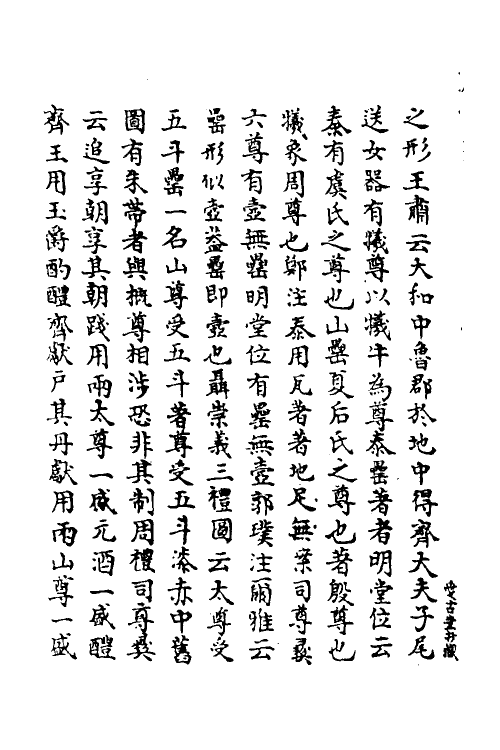 之形王肅云大和中魯郡於地中得齊大夫子尾
送女器有犧尊以犧牛為尊泰罍著者明堂位云
泰有虞氏之尊也山罍夏后氏之尊也著殷尊也
犧象周尊也鄭注泰用瓦著著地足無案司尊彞
六尊有壺無罍明堂位有罍無壺郭璞注爾雅云
罍形似壺益罍即壺也聶崇義三禮圖云太尊受
五斗罍一名山尊受五斗著尊受五斗漆赤中舊
圖有朱帶者與概尊相涉恐非其制周禮司尊彞
云追享朝享其朝踐用兩太尊一盛元酒一盛醴
齊王用玉爵酌醴齊獻戸其丹獻用兩山尊一盛